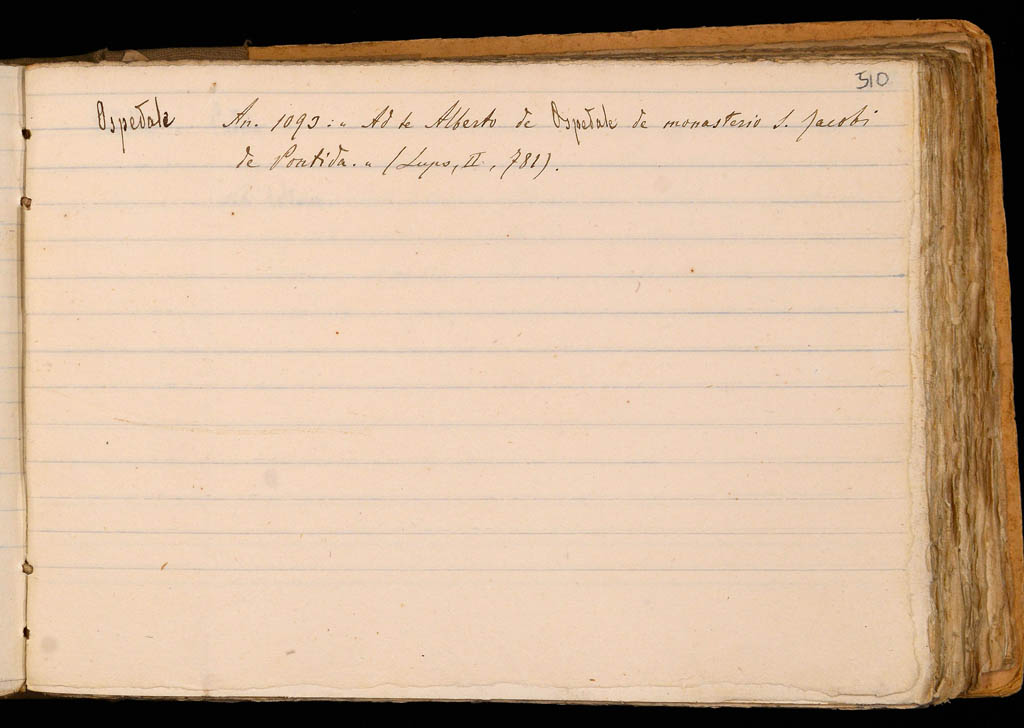 510
Ospedale An. 1093: " Ad te Alberto de Ospedale de monasterio S. Jacobi
de Pontida. " (Lupo, II, 781).